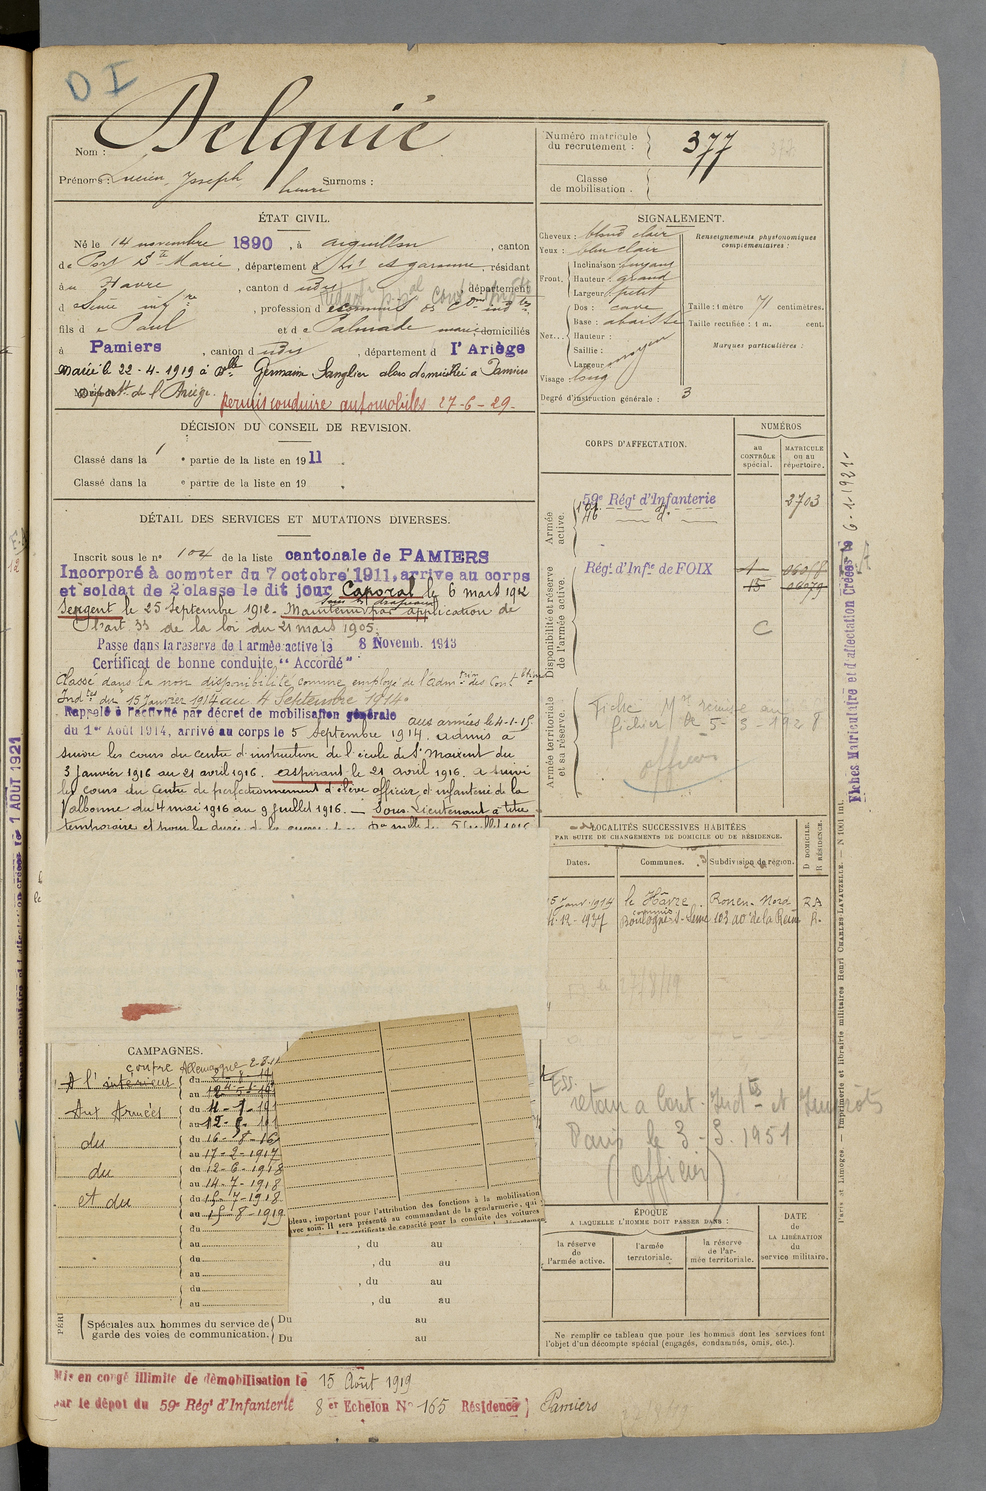 DI
Nom : Delquié
Prénoms : Lucien Joseph henri Surnoms :
Numéro matricule du recrutement : 377
Classe de mobilisation .
ÉTAT CIVIL.
Né le 14 novembre 1890, à aiguillon, canton
de Port Ste Marie, département Lot et garonne, résidant
au Havre, canton d udis, département
d Seine infre, profession d
fils de Paul et de Palmade domiciliés
à Pamiers, canton d udis, département d l'Ariège
Marié le 22-4-1919 à Dlle Germain Sanglier alors domiciliée à Pamiers
Départt de l'Ariège. permis conduire automobiles 27-6-29.
SIGNALEMENT.
Cheveux : blond clair
Yeux : bleu clair
Front. Inclinaison fuyant
Hauteur grand
Largeur petit
Nez... Dos : cave
Base : abaissée
Hauteur :
Saillie : moyen
Largeur
Visage : long
Renseignements physionomiques complémentaires :
Taille : 1 mètre 71 centimètres.
Taille rectifiée : 1 m. cent.
Marques particulières :
Degré d'instruction générale : 3
DÉCISION DU CONSEIL DE REVISION.
Classé dans la 1e partie de la liste en 1911
Classé dans la e partie de la liste en 19
DÉTAIL DES SERVICES ET MUTATIONS DIVERSES.
Inscrit sous le n° 104 de la liste cantonale de PAMIERS
Incorporé à compter du 7 octobre 1911, arrivé au corps
et soldat de 2e classe le dit jour Caporal le 6 mars 1912
Sergent le 25 Septembre 1912 - Maintenu sous les drapeaux par application de
l'art 33 de la loi du 21 mars 1905.
Passé dans la réserve de l'armée active le 8 Novemb. 1913
Certificat de bonne conduite "Accordé"
Classé dans la non disponibilité comme employé de l'Admtion des Contbtions
Indtes du 15 Janvier 1914 au 4 Septembre 1914.
Rappelé à l'activité par décret de mobilisation générale aux armées le 4-1-15
du 1er Août 1914, arrivé au corps le 5 Septembre 1914. admis à
suivre les cours du centre d'instruction de l'école de St Maixent du
3 Janvier 1916 au 21 avril 1916. aspirant le 21 avril 1916. a suivi
les cours du Centre de perfectionnement d'élève officier d'infanterie de la
Valbonne du 4 mai 1916 au 9 juillet 1916. — Sous-Lieutenant à titre
temporaire et pour la durée de la guerre
CORPS D'AFFECTATION.
NUMÉROS
au CONTRÔLE spécial.
MATRICULE ou au répertoire.
Armée active.
59e Régt d'Infanterie 2703
Disponibilité et réserve de l'armée active.
Régt d'Infie de FOIX
15
C
Armée territoriale et sa réserve.
Fiche Mle remise au
fichier le 5-3-1928
officier
LOCALITÉS SUCCESSIVES HABITÉES
PAR SUITE DE CHANGEMENTS DE DOMICILE OU DE RÉSIDENCE.
Dates. Communes. Subdivision de région. D DOMICILE. R RÉSIDENCE.
5 Janv. 1914 le Hâvre Rouen-Nord R.
12-1937 Boulogne s-Seine R.
retour a Cont. Indtes et Impôts
Paris le 3-5-1951
(officier)
CAMPAGNES.
contre Allemagne
A l'intérieur
Aux Armées
du 16-8-16
du au 17-2-1917
du 12-6-1918
du au 14-7-1918
et du du 15-7-1918
au 15-8-1919
du
au
du
au
du
au
bleau, important pour l'attribution des fonctions à la mobilisation
avec soin. Il sera présenté au commandant de la gendarmerie, qui
Les certificats de capacité pour la conduite des voitures
, du au
, du au
, du au
, du au
Spéciales aux hommes du service de garde des voies de communication.
Du au
Du au
ÉPOQUE
A LAQUELLE L'HOMME DOIT PASSER DANS :
la réserve de l'armée active.
l'armée territoriale.
la réserve de l'armée territoriale.
DATE DE LA LIBÉRATION du service militaire.
Ne remplir ce tableau que pour les hommes dont les services font
l'objet d'un décompte spécial (engagés, condamnés, omis, etc.).
Mis en congé illimité de démobilisation le 15 Août 1919
par le dépôt du 59e Régt d'Infanterie 8er Echelon N° 165 Résidence } Pamiers
Fiches Matriculaire et d'affectation Créées le 6-1-1921-
Paris et Limoges. — Imprimerie et librairie militaires Henri CHARLES-LAVAUZELLE. — N 1001 int.
1 AOUT 1921